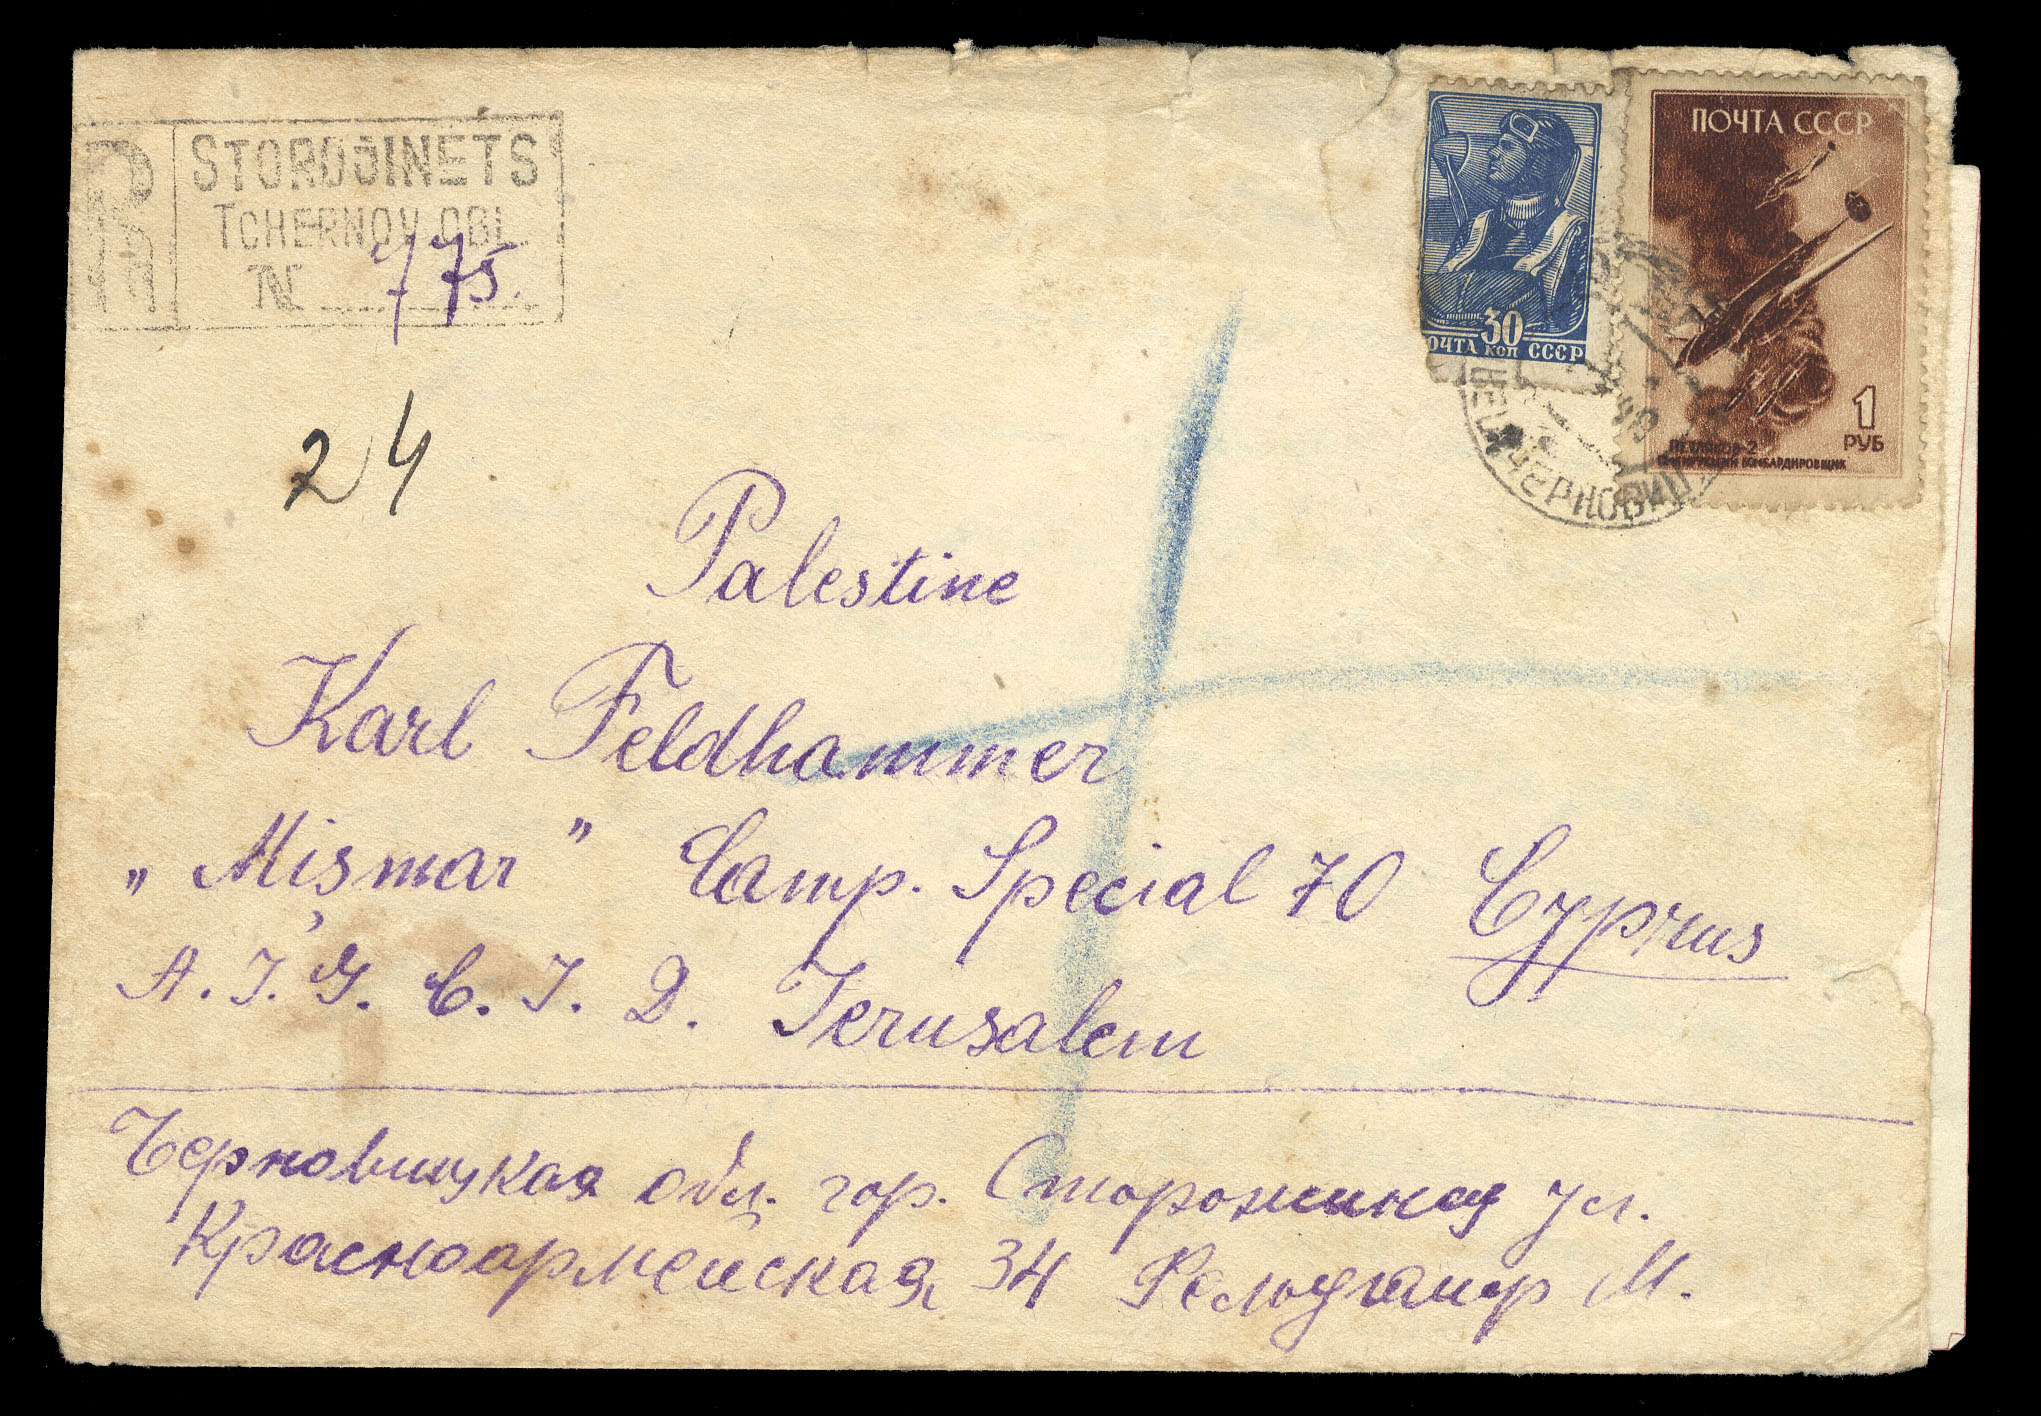 R STOROJINETS
TCHERNOV. OBL.
N 775.
24
30
ПОЧТА КОП СССР
ПОЧТА СССР
1
РУБ
ПЕТЛЯКОВ-2
БОМБАРДИРОВЩИК
ЧЕРНОВИЦ
Palestine
Karl Feldhammer
„Mismar" Camp. Special 70 Cyprus
A. J. G. C. I. D. Jerusalem
Черновицкая обл. гор. Сторожинец ул.
Красноармейская 34 Фельдгамер М.